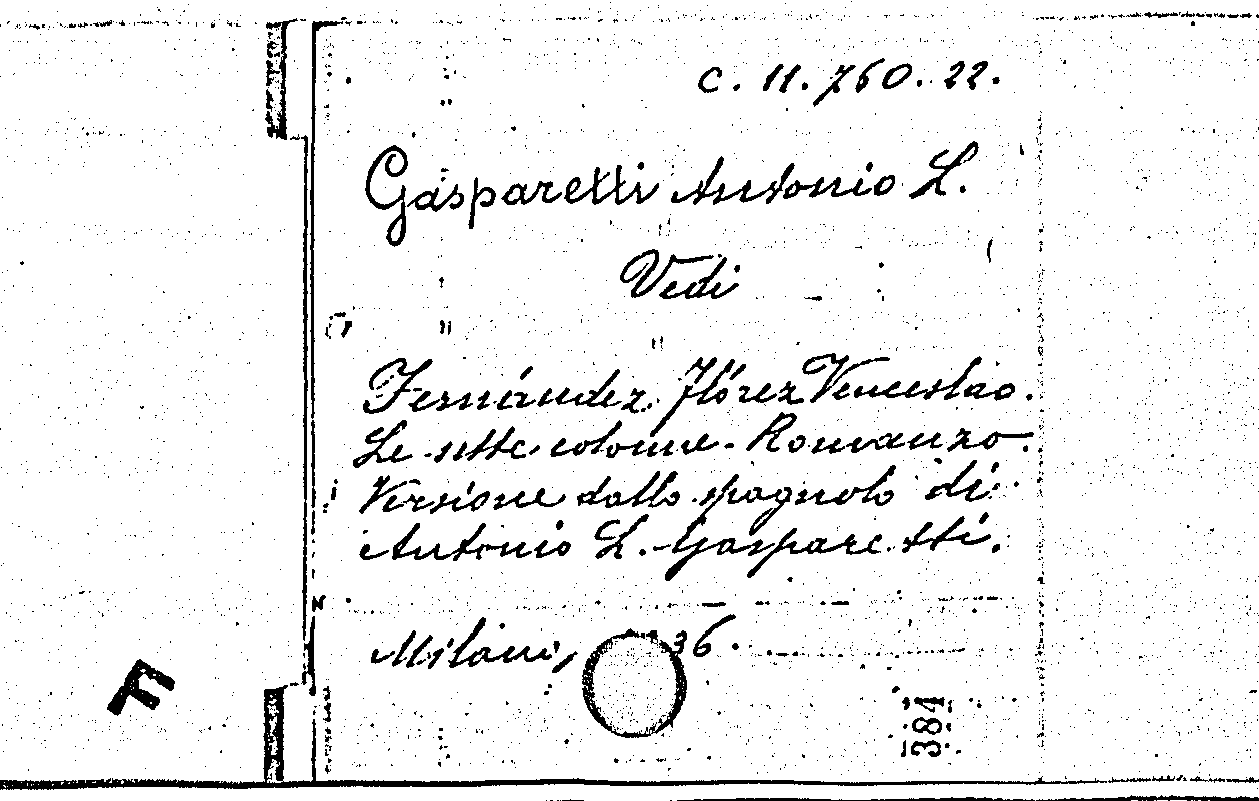 C. 11.760.22.
Gasparetti Antonio L.
Vedi
Fernández Flórez Venceslao.
Le sette colonne - Romanzo.
Versione dallo spagnolo di
Antonio L. Gasparetti.
Milano, 36.
384
F